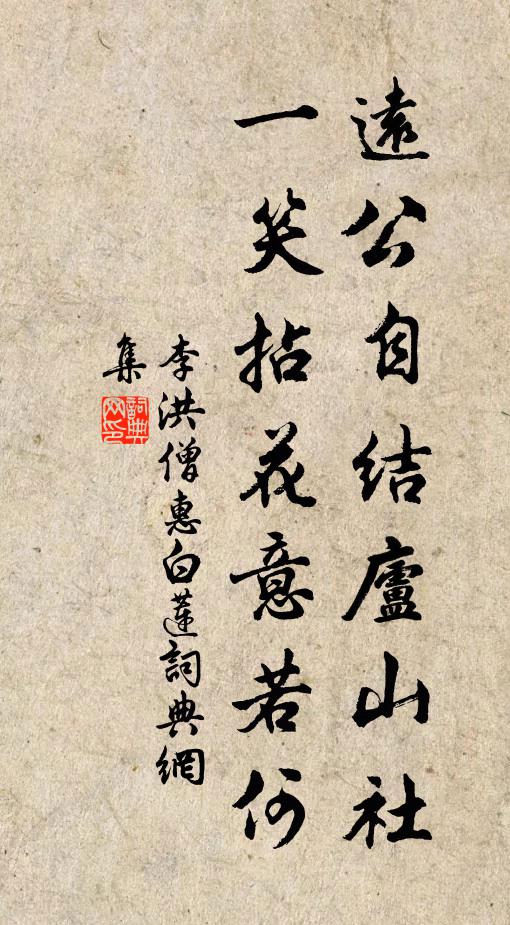 遠公自結廬山社
一笑拈花意若何
李洪僧惠白蓮詞典網
集
詞典網印